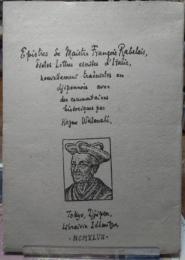 Epistres de Maistre François Rabelais,
toutes Lettres escrites d'Italie,
nouvellement traduictes en
avec
des commentaires
historiques par
Kazuo Watanabé.
Tokyo,
Librairie
· MCMXLVII ·